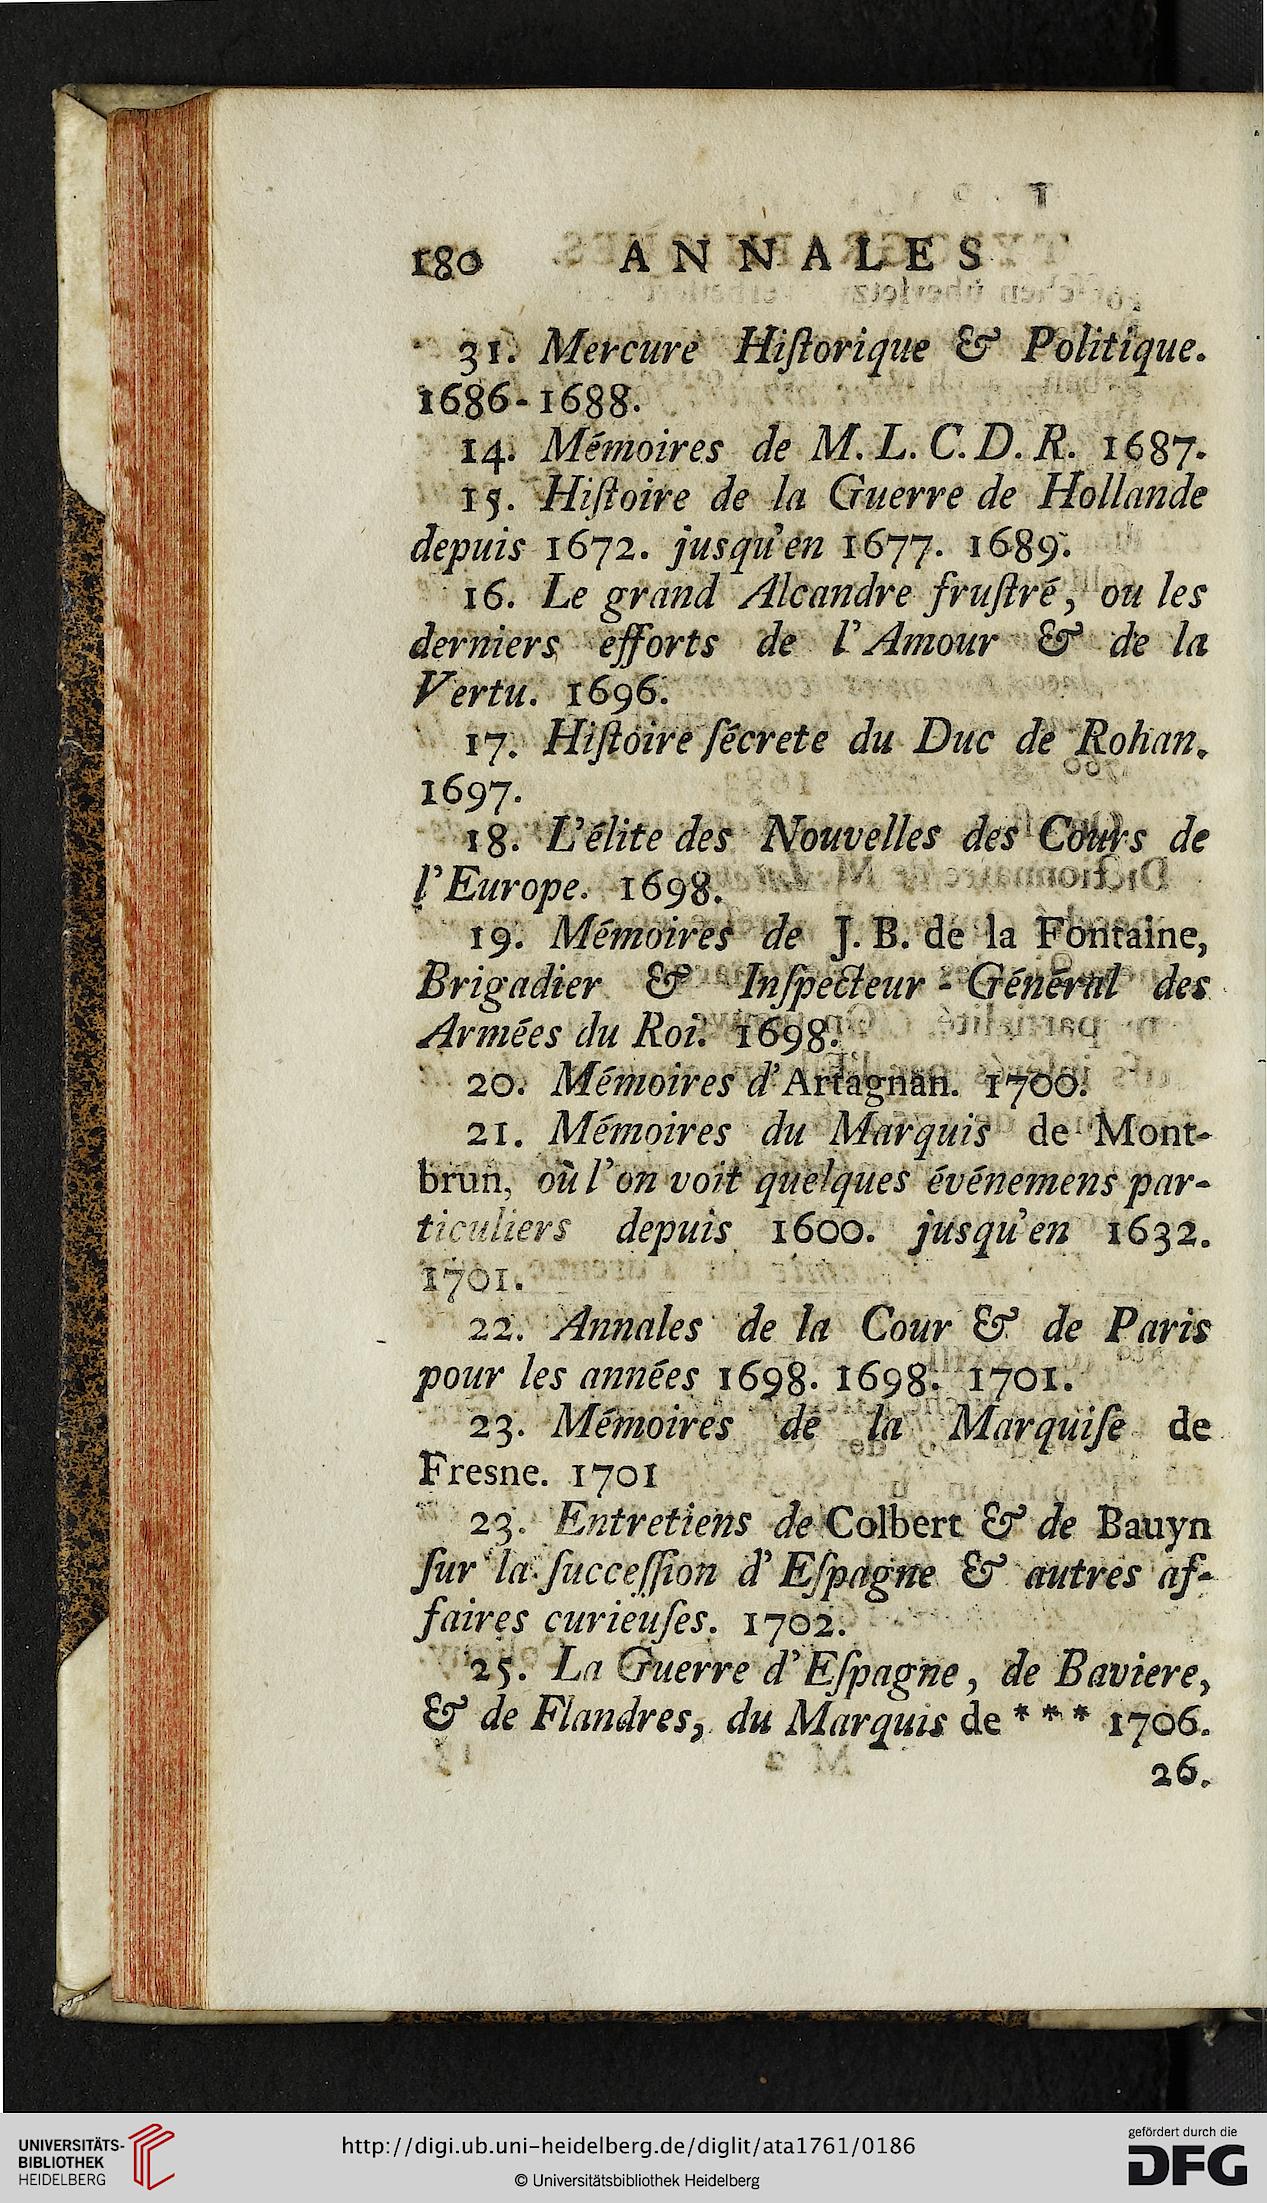 180 ANNALES
31. Mercure Hiſtorique & Politique.
1686-1688.
14. Mémoires de M. L. C. D. R. 1687.
15. Hiſtoire de la Guerre de Hollande
depuis 1672. jusqu'en 1677. 1689.
16. Le grand Alcandre fruſtré, ou les
derniers efforts de l'Amour & de la
Vertu. 1696.
17. Hiſtoire ſécrete du Duc de Rohan.
1697.
18. L'élite des Nouvelles des Cours de
l'Europe. 1698.
19. Mémoires de J. B. de la Fontaine,
Brigadier & Inſpecteur-Général des
Armées du Roi. 1698.
20. Mémoires d'Artagnan. 1700.
21. Mémoires du Marquis de Mont-
brun, où l'on voit quelques événemens par-
ticuliers depuis 1600. jusqu'en 1632.
1701.
22. Annales de la Cour & de Paris
pour les années 1698. 1698. 1701.
23. Mémoires de la Marquiſe de
Fresne. 1701
23. Entretiens de Colbert & de Bauyn
ſur la ſucceſſion d'Eſpagne & autres af-
faires curieuſes. 1702.
25. La Guerre d'Eſpagne, de Baviere,
& de Flandres, du Marquis de *** 1706.
26.
UNIVERSITÄTS-
BIBLIOTHEK
HEIDELBERG
http://digi.ub.uni-heidelberg.de/diglit/ata1761/0186
© Universitätsbibliothek Heidelberg
gefördert durch die
DFG